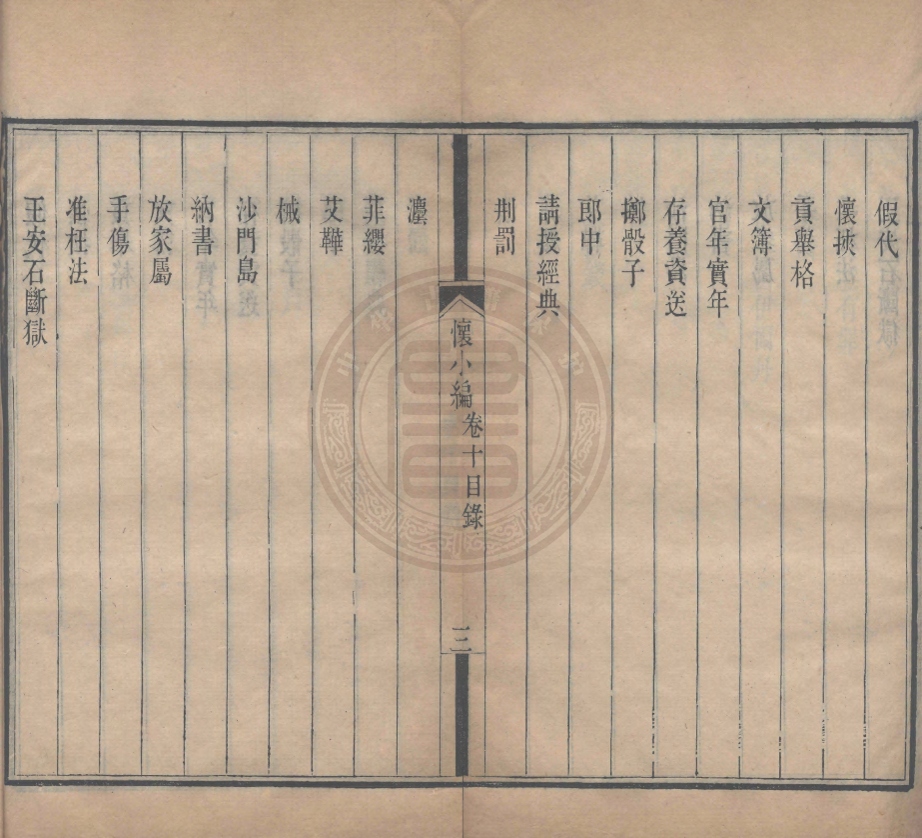 假代
懷挾
貢舉格
文簿
官年實年
存養資送
擲骰子
郎中
請授經典
刑罰
懷小編卷十目錄
三
菲纓
艾鞾
械
沙門島
納書
放家屬
手傷
准枉法
王安石斷獄